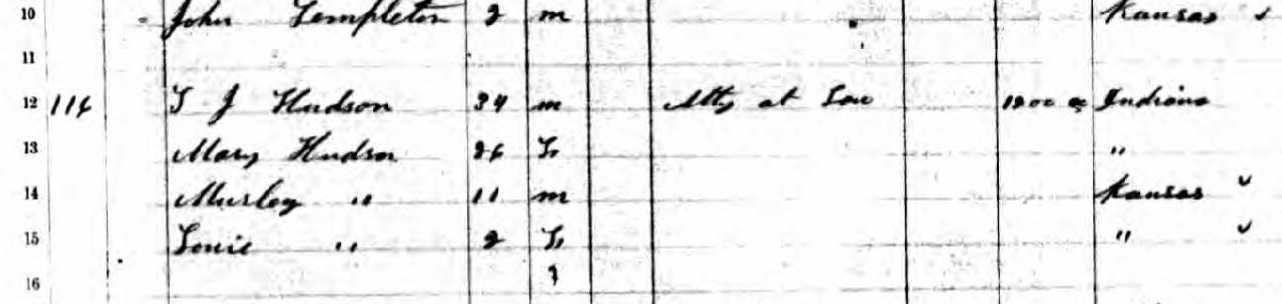 10 John Templeton 2 m Kansas
11
12 114 T J Hudson 34 m Atty at Law 1200 Indiana
13 Mary Hudson 26 F "
14 Murley " 11 m Kansas
15 " 2 F "
16